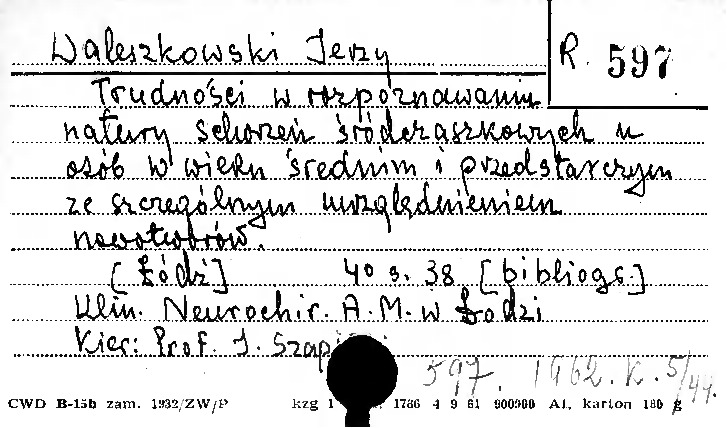 Waleszkowski Jerzy
R. 597
Trudności w rozpoznawaniu
natury schorzeń śródczaszkowych u
osób w wieku średnim i przedstarczym
ze szczególnym uwzględnieniem
nowotworów.
[Łódź] 40 s. 38 [bibliogr.]
Klin. Neurochir. A.M. w Łodzi
Kier: Prof. J. Szapi
597. 1962. K. 5/44.
CWD B-15b zam. 1932/ZW/P kzg 1 1786 4 9 61 900900 A1, karton 180 g